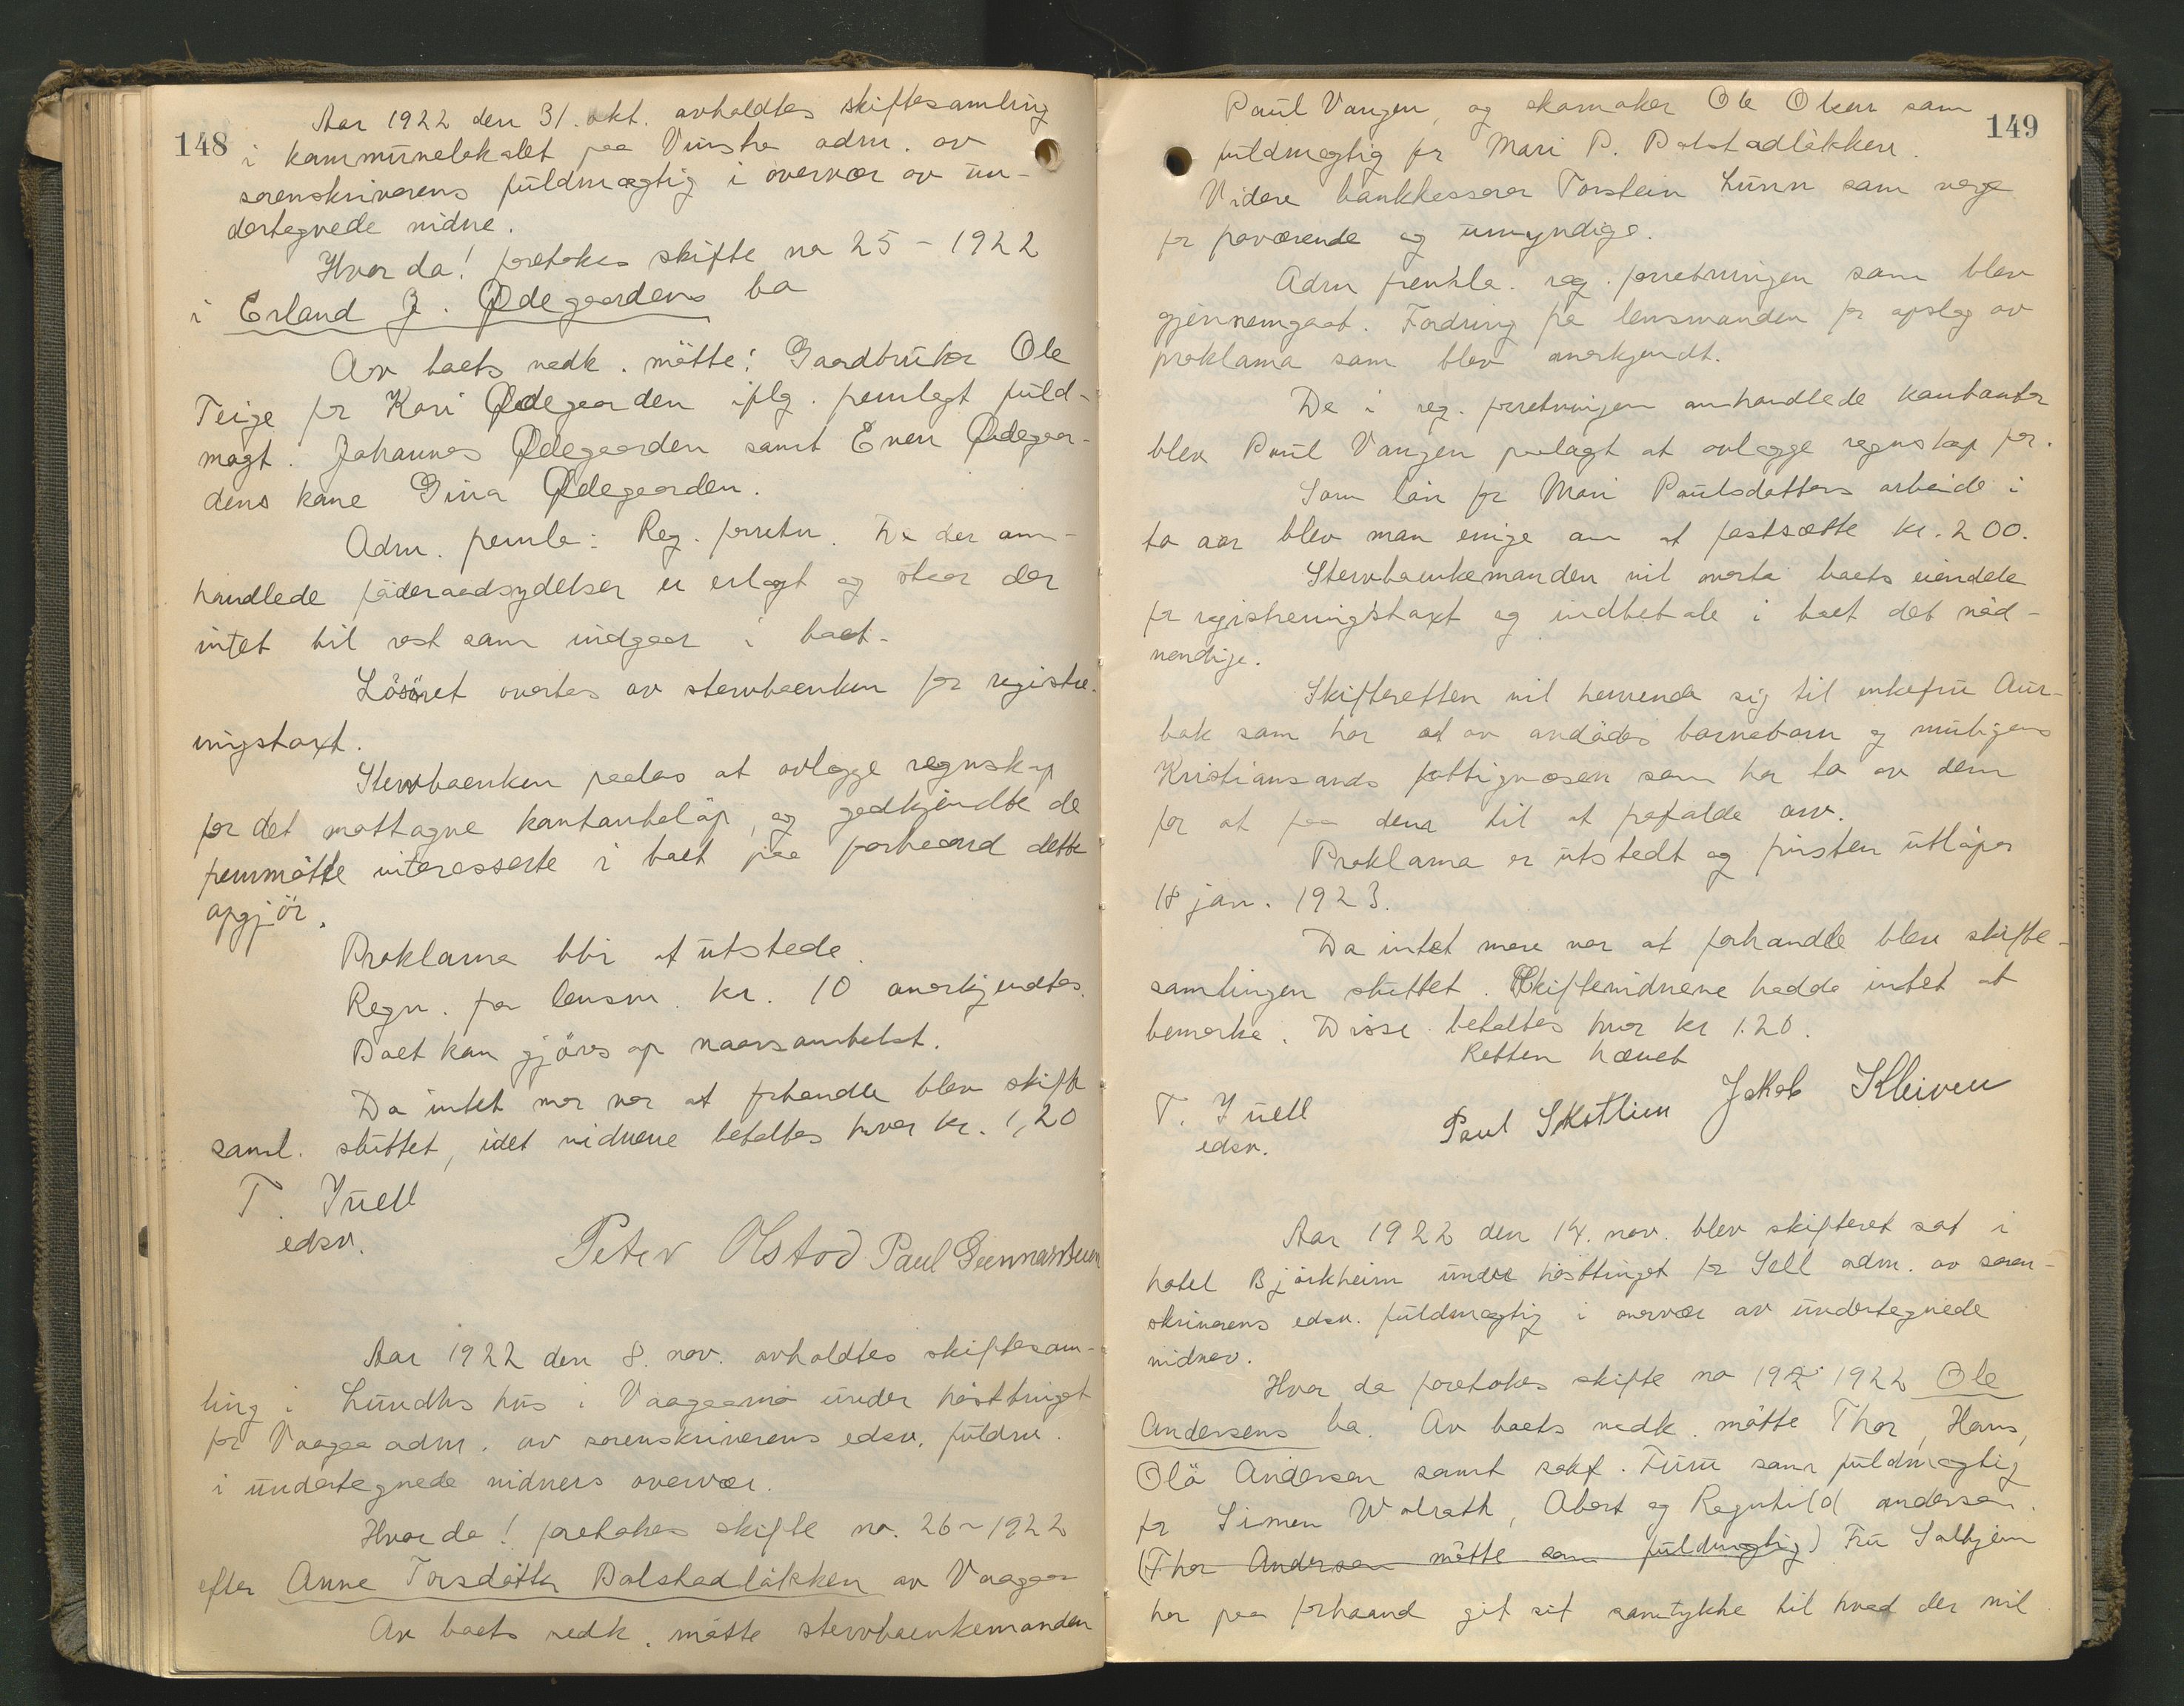 148
Aar 1922 den 31. okt. avholdtes skiftesamling
i kommunelokalet paa Vinstra adm. av
sorenskriverens fuldmægtig i overvær av un-
dertegnede vidne.
Hvor da! foretokes skifte no 25 - 1922
i Erland J. Ødegaardens bo
Av boets vedk. mötte: Gaardbruker Ole
Teige for Kari Ødegaarden iflg. fremlagt fuld-
magt. Johannes Ødegaarden samt Even Ødegaar-
dens kone Gina Ødegaarden.
Adm. fremla: Reg. forretn. De der om-
handlede föderaadsydelser er erlagt og staar der
intet til rest som indgaar i boet.
Lösöret overtas av stervboenken for registre-
ringstaxt.
Stervboenken paalas at avlægge regnskap
for det mottagne kontantbelöp, og godkjendte de
fremmötte interesserte i boet paa forhaand dette
opgjör.
Proklama blir at utstede.
Regn. fra lensm. kr. 10 anerkjendtes.
Boet kan gjöres op naarsomhelst.
Da intet mer var at forhandle blev skifte
saml. sluttet, idet vidnene betaltes hver kr. 1,20
T. Juell
edsv.
Peter Olstad Paul Gunnarstuen
Aar 1922 den 8. nov. avholdtes skiftesam-
ling i Lundhs hus i Vaagaamo under hösttinget
for Vaagaa adm. av sorenskriverens edsv. fuldm.
i undertegnede vidners overvær.
Hvor da! foretokes skifte no. 26 - 1922
efter Anne Torsdatter Bolstadlökken av Vaagaa
Av boets vedk. mötte stervboenkemanden
149
Paul Vangen, og skomaker Ole Olsen som
fuldmægtig for Mari P. Bolstadlökken.
Videre bankkasserer Torstein Lunn som verge
for fraværende og umyndige.
Adm fremla. reg. forretningen som blev
gjennemgaat. Fordring fra lensmanden for opslag av
proklama som blev anerkjendt.
De i reg. forretningen omhandlede kontanter
blev Paul Vangen paalagt at avlægge regnskap for.
Som lön for Mari Paulsdatters arbeide i
to aar blev man enige om at fastsætte kr. 200.
Stervboenkemanden vil overta boets eiendele
for registreringstaxt og indbetale i boet det nöd-
vendige.
Skifteretten vil henvende sig til enkefru Aur-
bak som har et av avdödes barnebarn og muligens
Kristiansands fattigvæsen som har to av dem
for at faa dem til at frafalde arv.
Proklama er utstedt og fristen utlöper
18 jan. 1923.
Da intet mere var at forhandle blev skifte-
samlingen sluttet. Skiftevidnene hadde intet at
bemerke. Disse betaltes hver kr 1.20.
Retten hævet
T. Juell
edsv.
Paul Skotlien Jakob Kleiven
Aar 1922 den 14. nov. blev skifteret sat i
hotel Bjørkheim under hösttinget for Sell adm. av soren-
skriverens edsv. fuldmægtig i overvær av undertegnede
vidner.
Hvor da foretokes skifte no 19 1922 Ole
Andersens bo. Av boets vedk. mötte Thor, Hans,
Ola Andersen samt sakf. Furu som fuldmægtig
for Simen Walrath, Abert og Ragnhild Andersen.
(Thor Andersen mötte som fuldmægtig) Fru Solhjem
har paa forhaand git sit samtykke til hvad der vil